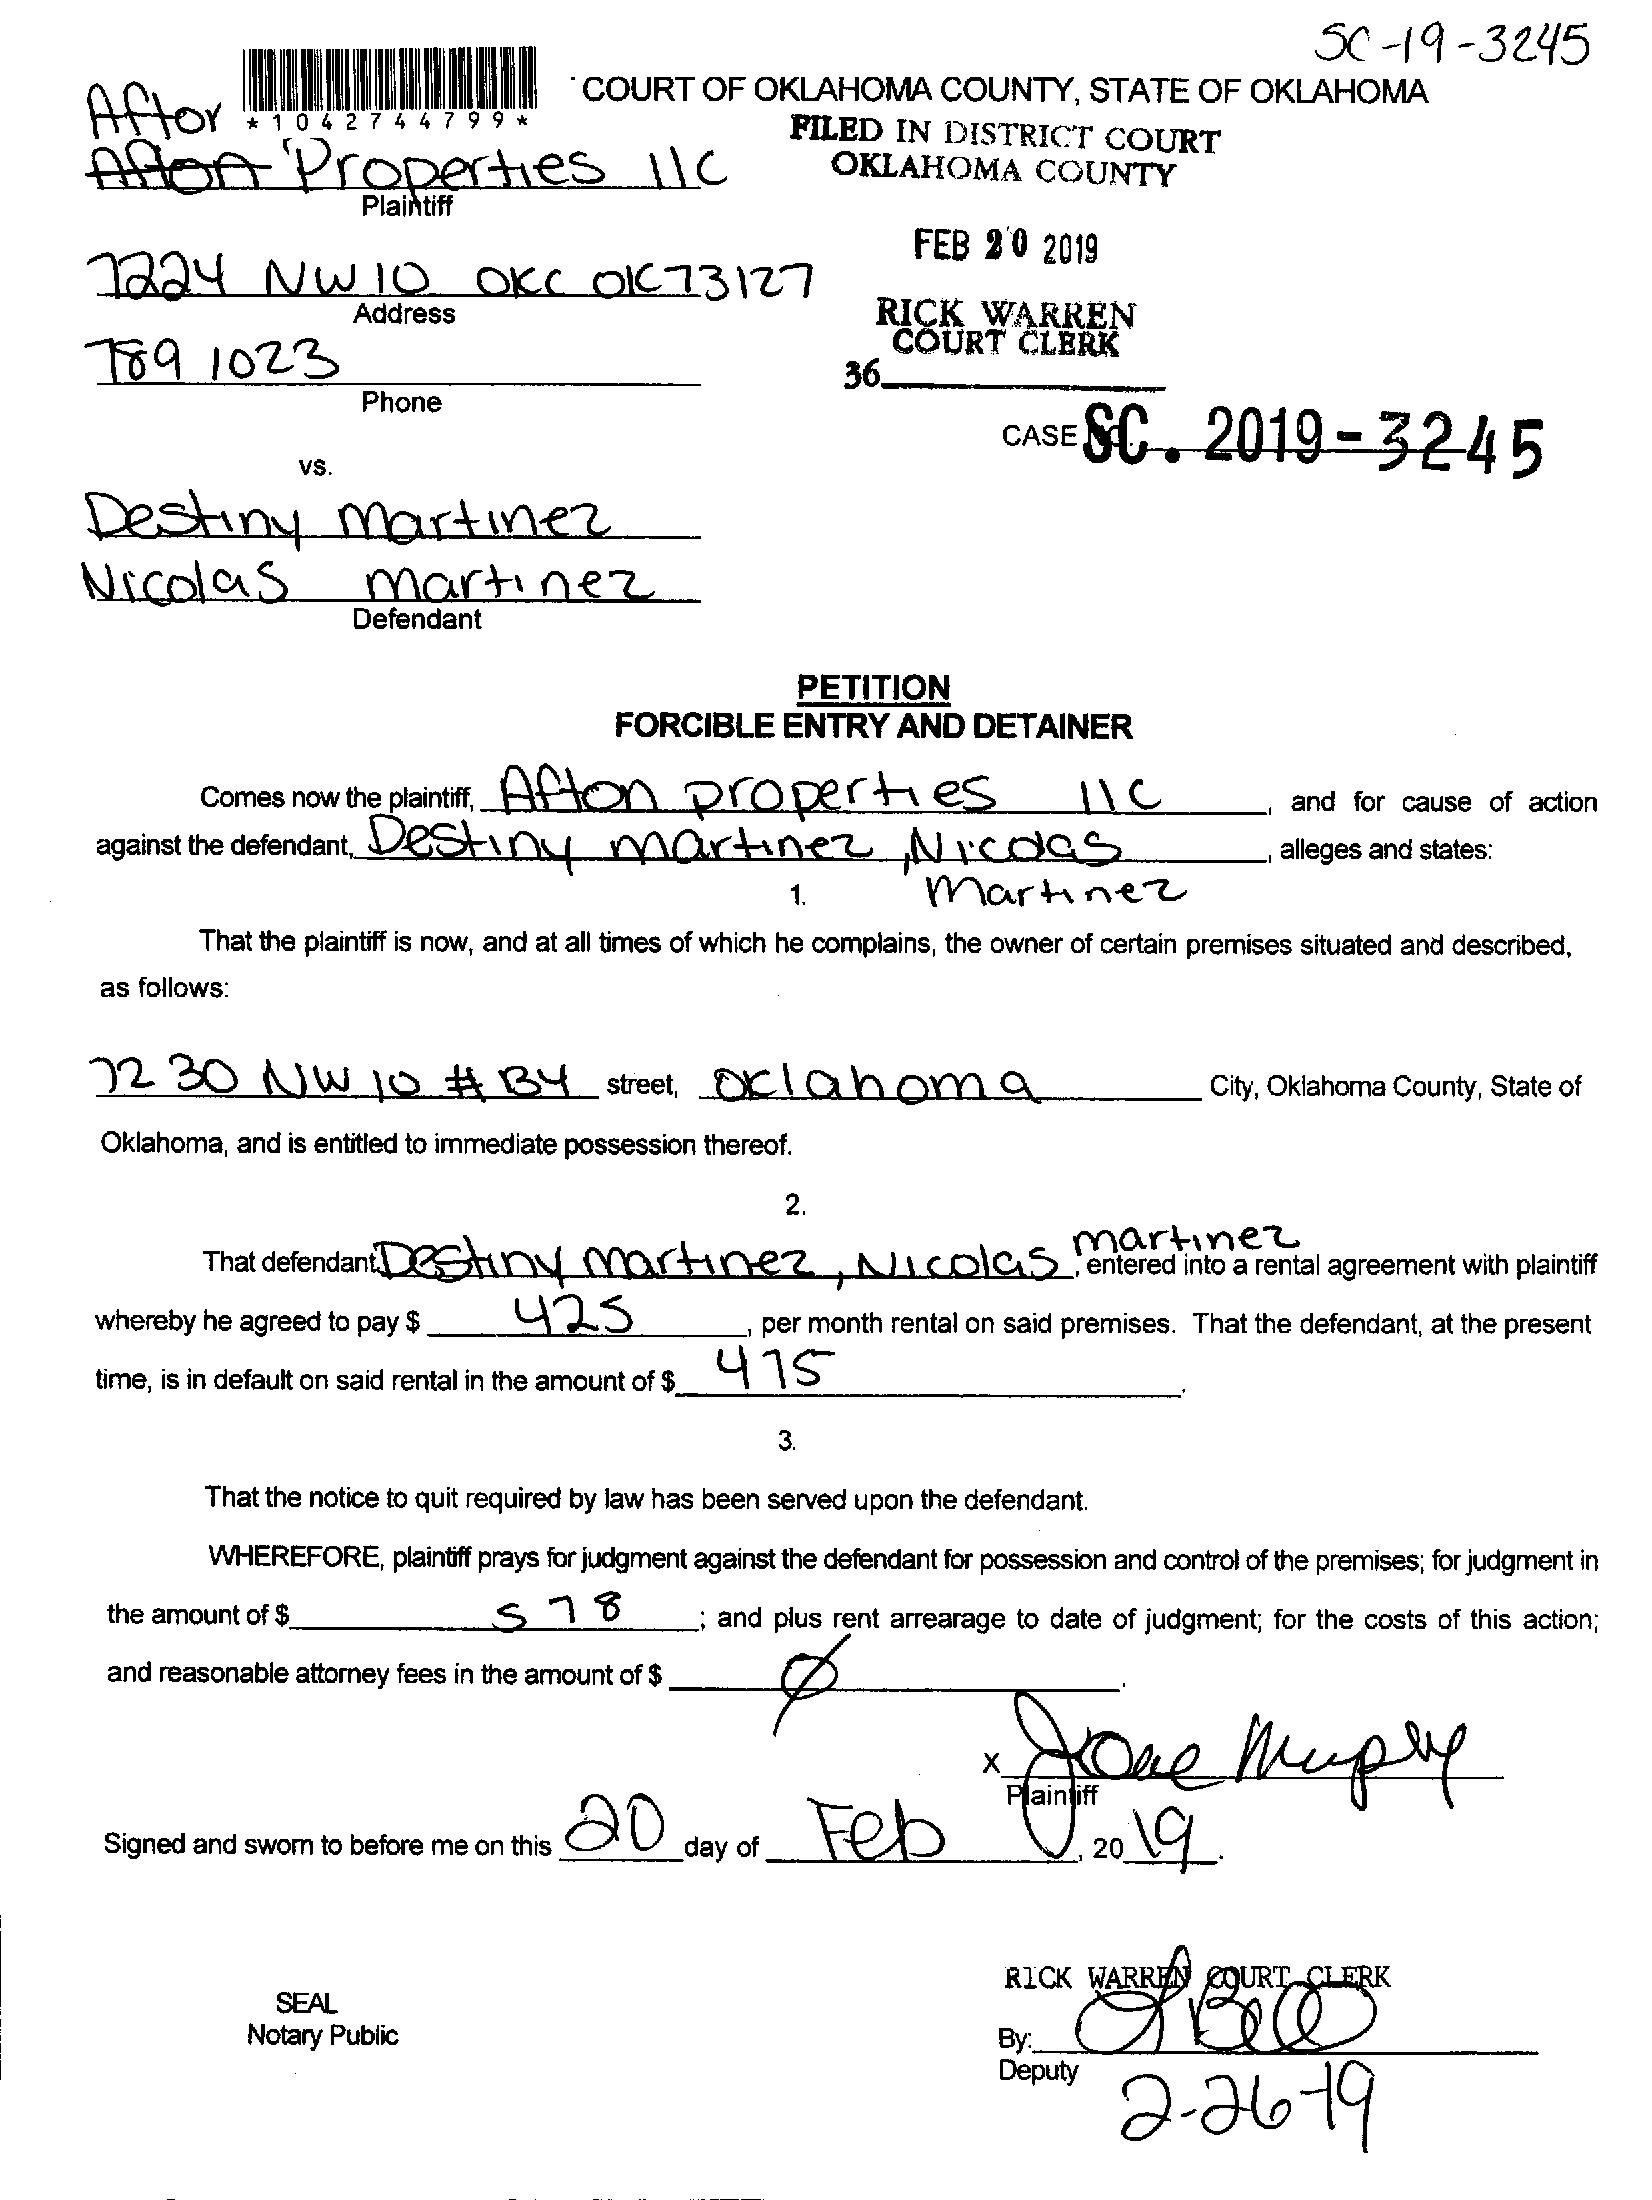 SC-19-3245
COURT OF OKLAHOMA COUNTY, STATE OF OKLAHOMA
Aftor
*1042744799*
FILED IN DISTRICT COURT
OKLAHOMA COUNTY
Afton Properties llc
Plaintiff
FEB 20 2019
7224 NW 10 OKC OK 73127
Address
RICK WARREN
COURT CLERK
789 1023
36
Phone
CASE SC. 2019-3245
vs.
Destiny Martinez
Nicolas Martinez
Defendant
PETITION
FORCIBLE ENTRY AND DETAINER
Comes now the plaintiff, Afton properties llc, and for cause of action
against the defendant, Destiny Martinez, Nicolas, alleges and states:
1. Martinez
That the plaintiff is now, and at all times of which he complains, the owner of certain premises situated and described,
as follows:
7230 NW 10 # B4 street, Oklahoma City, Oklahoma County, State of
Oklahoma, and is entitled to immediate possession thereof.
2.
That defendant, Destiny Martinez, Nicolas Martinez, entered into a rental agreement with plaintiff
whereby he agreed to pay $ 425, per month rental on said premises. That the defendant, at the present
time, is in default on said rental in the amount of $ 475.
3.
That the notice to quit required by law has been served upon the defendant.
WHEREFORE, plaintiff prays for judgment against the defendant for possession and control of the premises; for judgment in
the amount of $ 578; and plus rent arrearage to date of judgment; for the costs of this action;
and reasonable attorney fees in the amount of $ ∅.
x Jane Murphy
Plaintiff
Signed and sworn to before me on this 20 day of Feb, 2019.
RICK WARREN COURT CLERK
SEAL
Notary Public
By:
Deputy
2-26-19